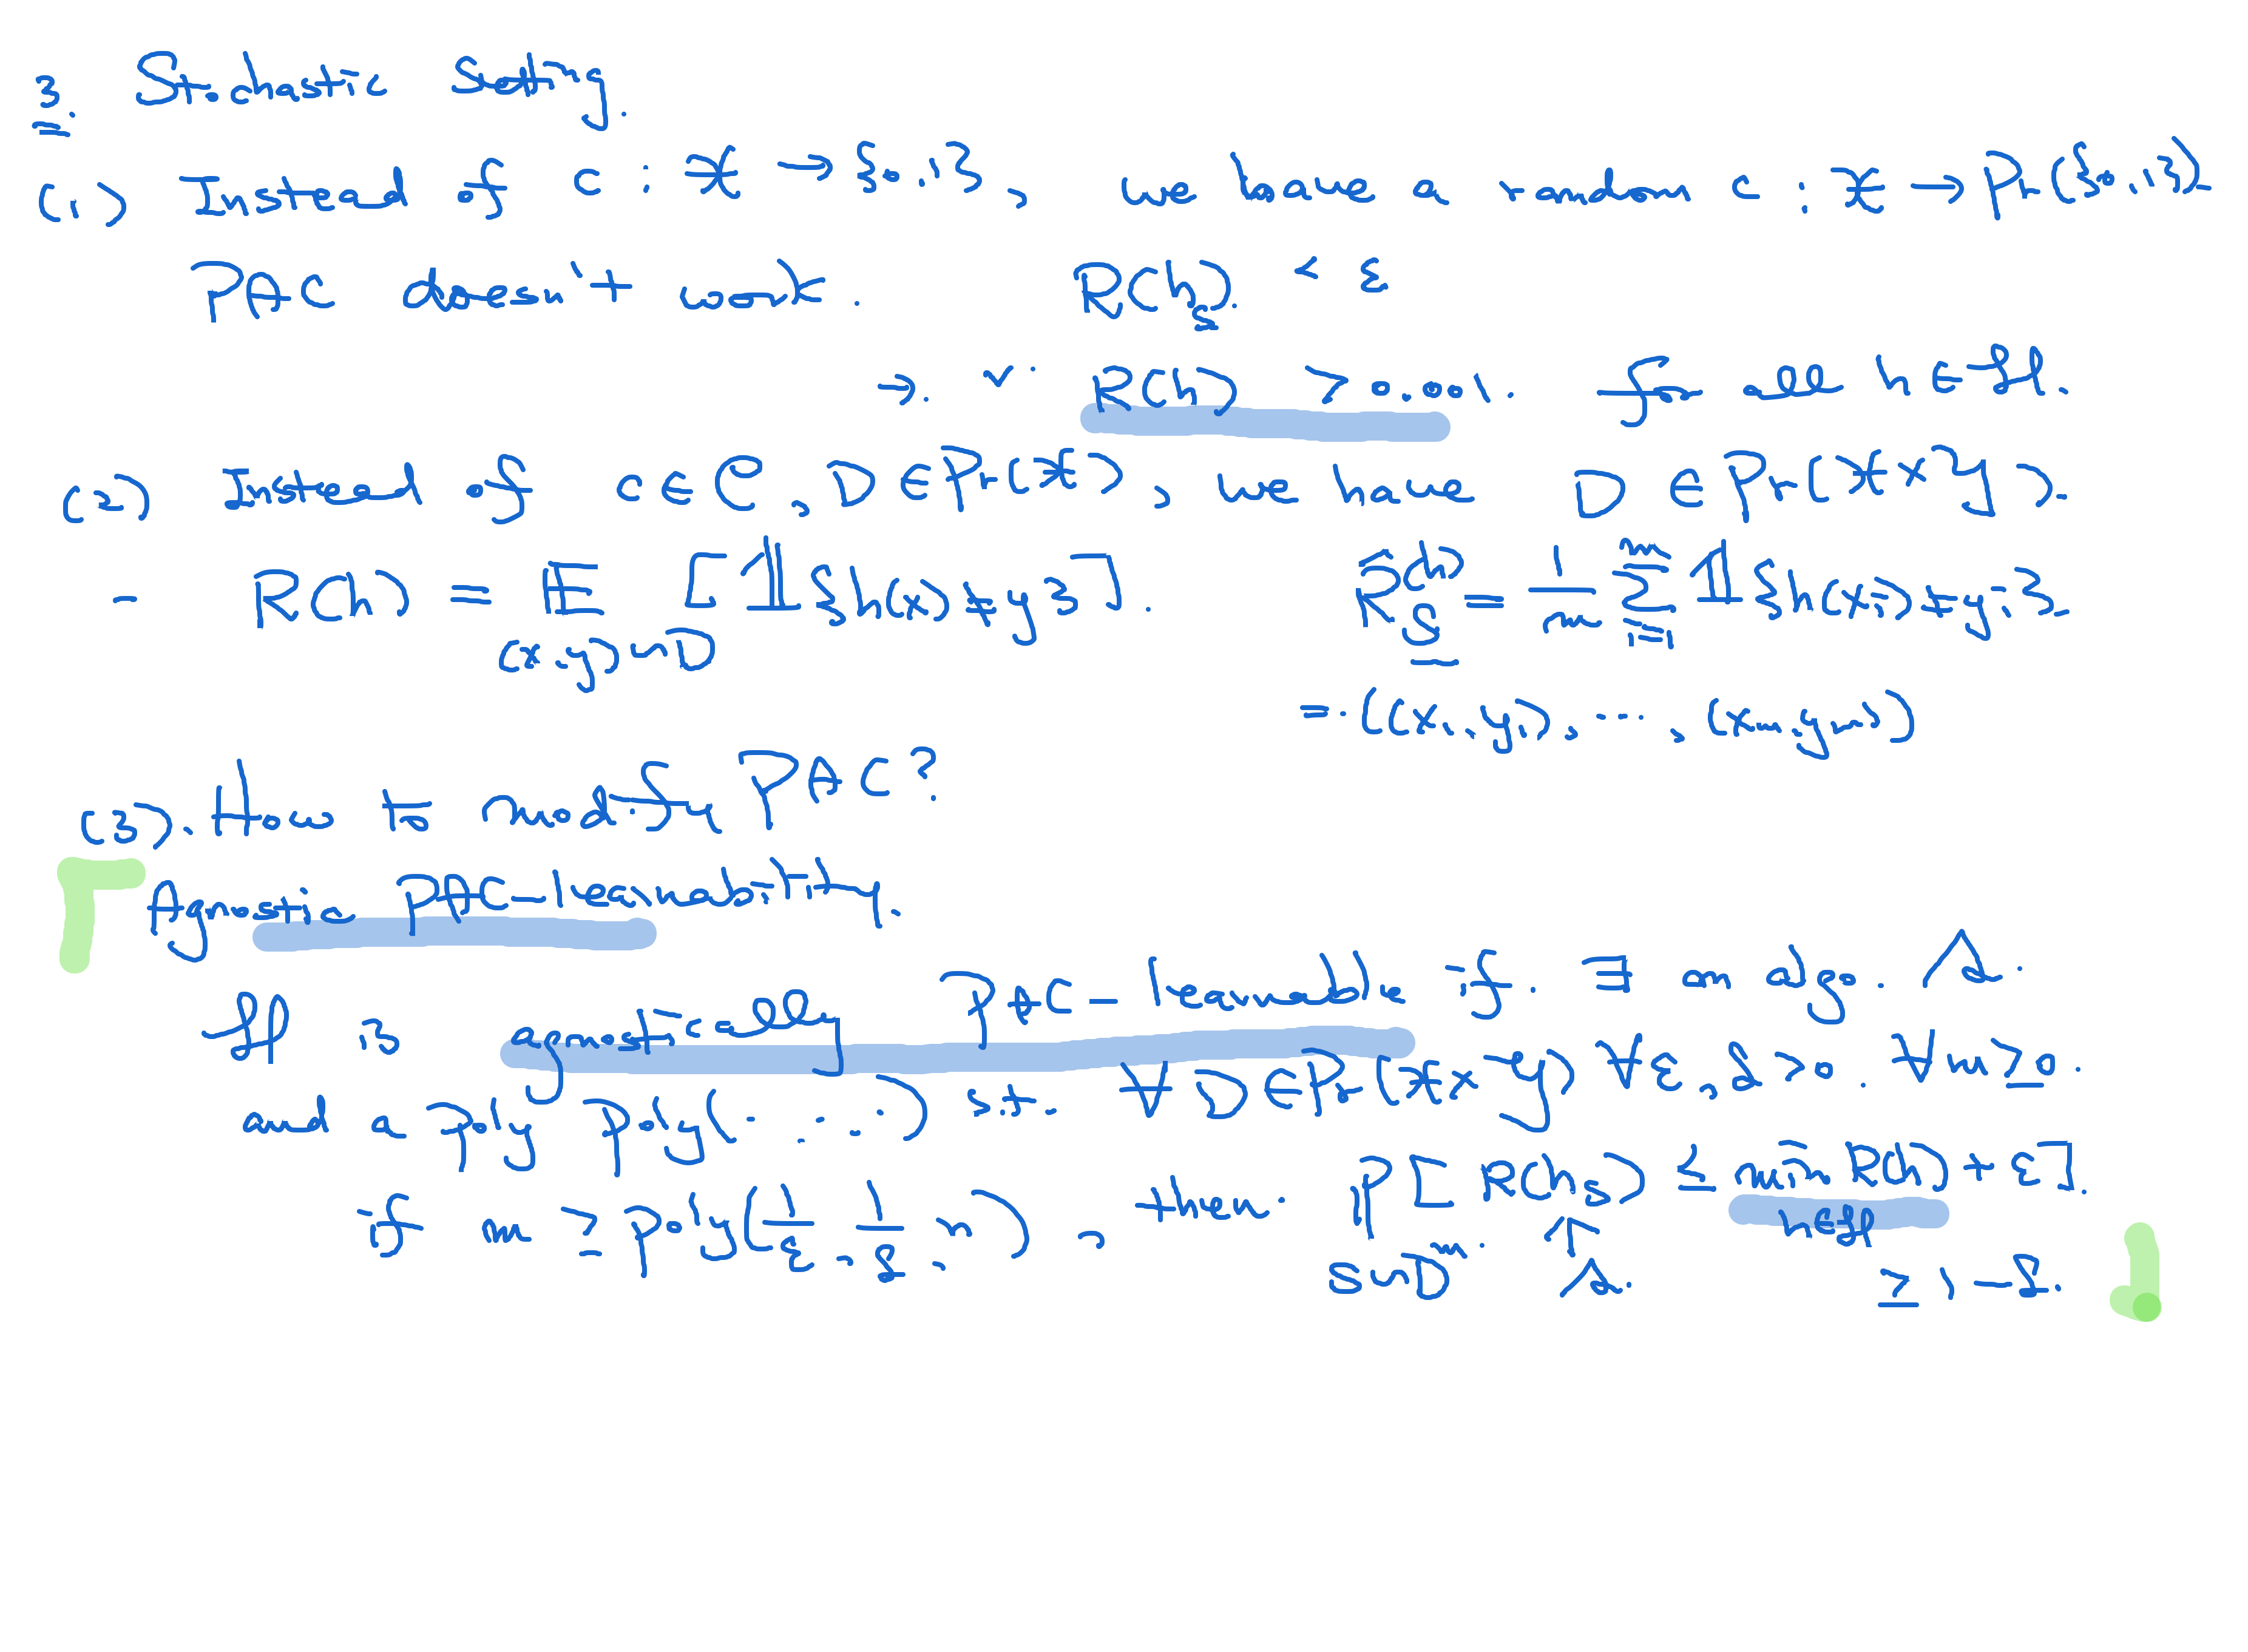 3. Stochastic Setting.
(1) Instead of c : X → {0,1}, we have a random c : X → Pr({0,1}).
PAC doesn't work. R(h_S) < ε
→ R(h) > 0.001. for all h ∈ H.
(2) Instead of c ∈ C, D ∈ Pr(X), we have D ∈ Pr(X × Y).
- R(h) = E_{(x,y)∼D} [𝟙{h(x) ≠ y}]. R̂_S(h) = 1/m Σ_{i=1}^{m} 𝟙{h(x_i) ≠ y_i}
= ((x_1,y_1), ..., (x_m,y_m))
(3). How to modify PAC?
Agnostic PAC-learnability.
H is agnostically PAC-learnable if ∃ an algo. A.
and a poly poly(....) s.t. ∀ D ∈ Pr(X × Y) ∀ ε, δ > 0. ∀ n ≥ 0.
if m ≥ poly(1/ε, 1/δ, n), then P_{S∼D^m} [R(h_S) ≤ min_{h∈H} R(h) + ε]
↑ A. ≥ 1 - δ.